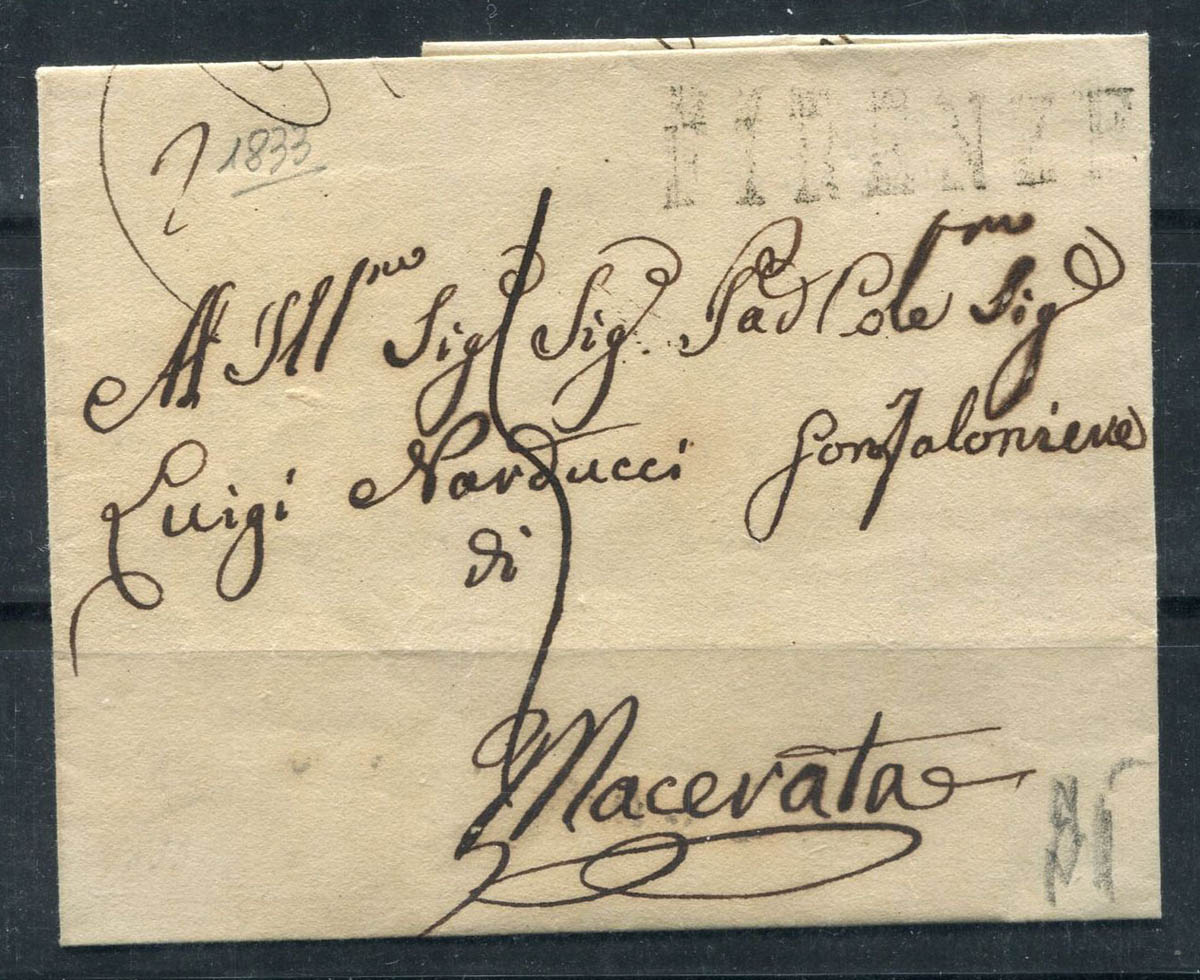 1833
FIRENZE
All' Ill.mo Sig.r Sig.r Pad.
Col.mo Sig.r
Luigi Narducci Gonfaloniere
di
Macerata